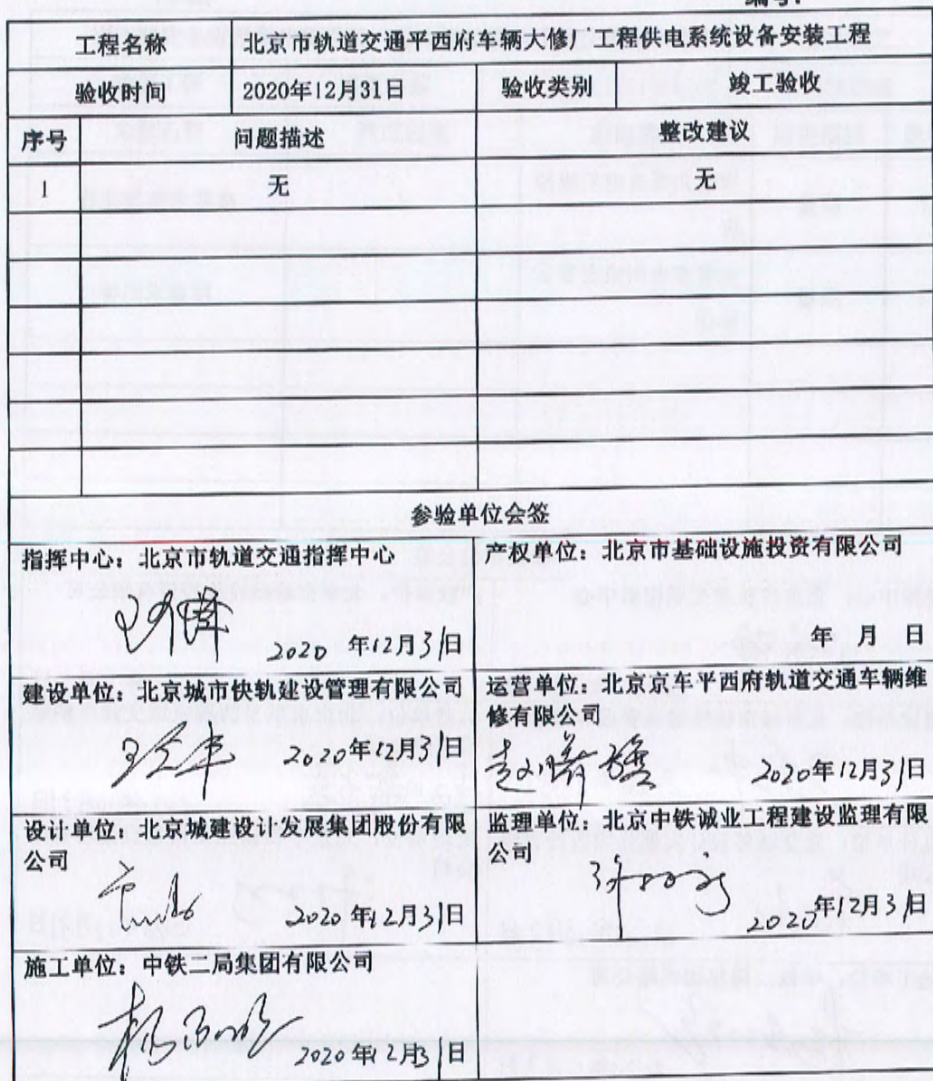 编号:
工程名称 北京市轨道交通平西府车辆大修厂工程供电系统设备安装工程
验收时间 2020年12月31日 验收类别 竣工验收
序号 问题描述 整改建议
1 无 无
参验单位会签
指挥中心：北京市轨道交通指挥中心
2020 年12月31日
产权单位：北京市基础设施投资有限公司
年 月 日
建设单位：北京城市快轨建设管理有限公司
2020年12月31日
运营单位：北京京车平西府轨道交通车辆维
修有限公司
2020年12月31日
设计单位：北京城建设计发展集团股份有限
公司
2020年12月31日
监理单位：北京中铁诚业工程建设监理有限
公司
2020年12月31日
施工单位：中铁二局集团有限公司
2020年12月31日